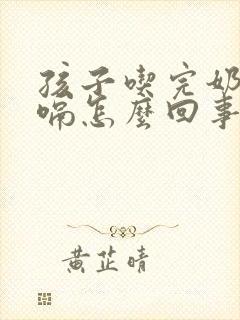 孩子喫完奶
喘怎麽回事
黃芷晴